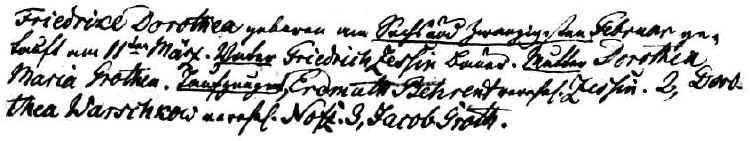 Friedrike Dorothea geboren am Sechs und zwanzigsten Februar ge-
tauft am 11ten März. Vater Friedrich Zessin Bauer. Mutter Dorothea
Maria Grothen. Taufzeugen, Erdmuth Behrend verehel. Zessin. 2, Doro-
thea Warschkow verehel. Notz. 3, Jacob Groth.